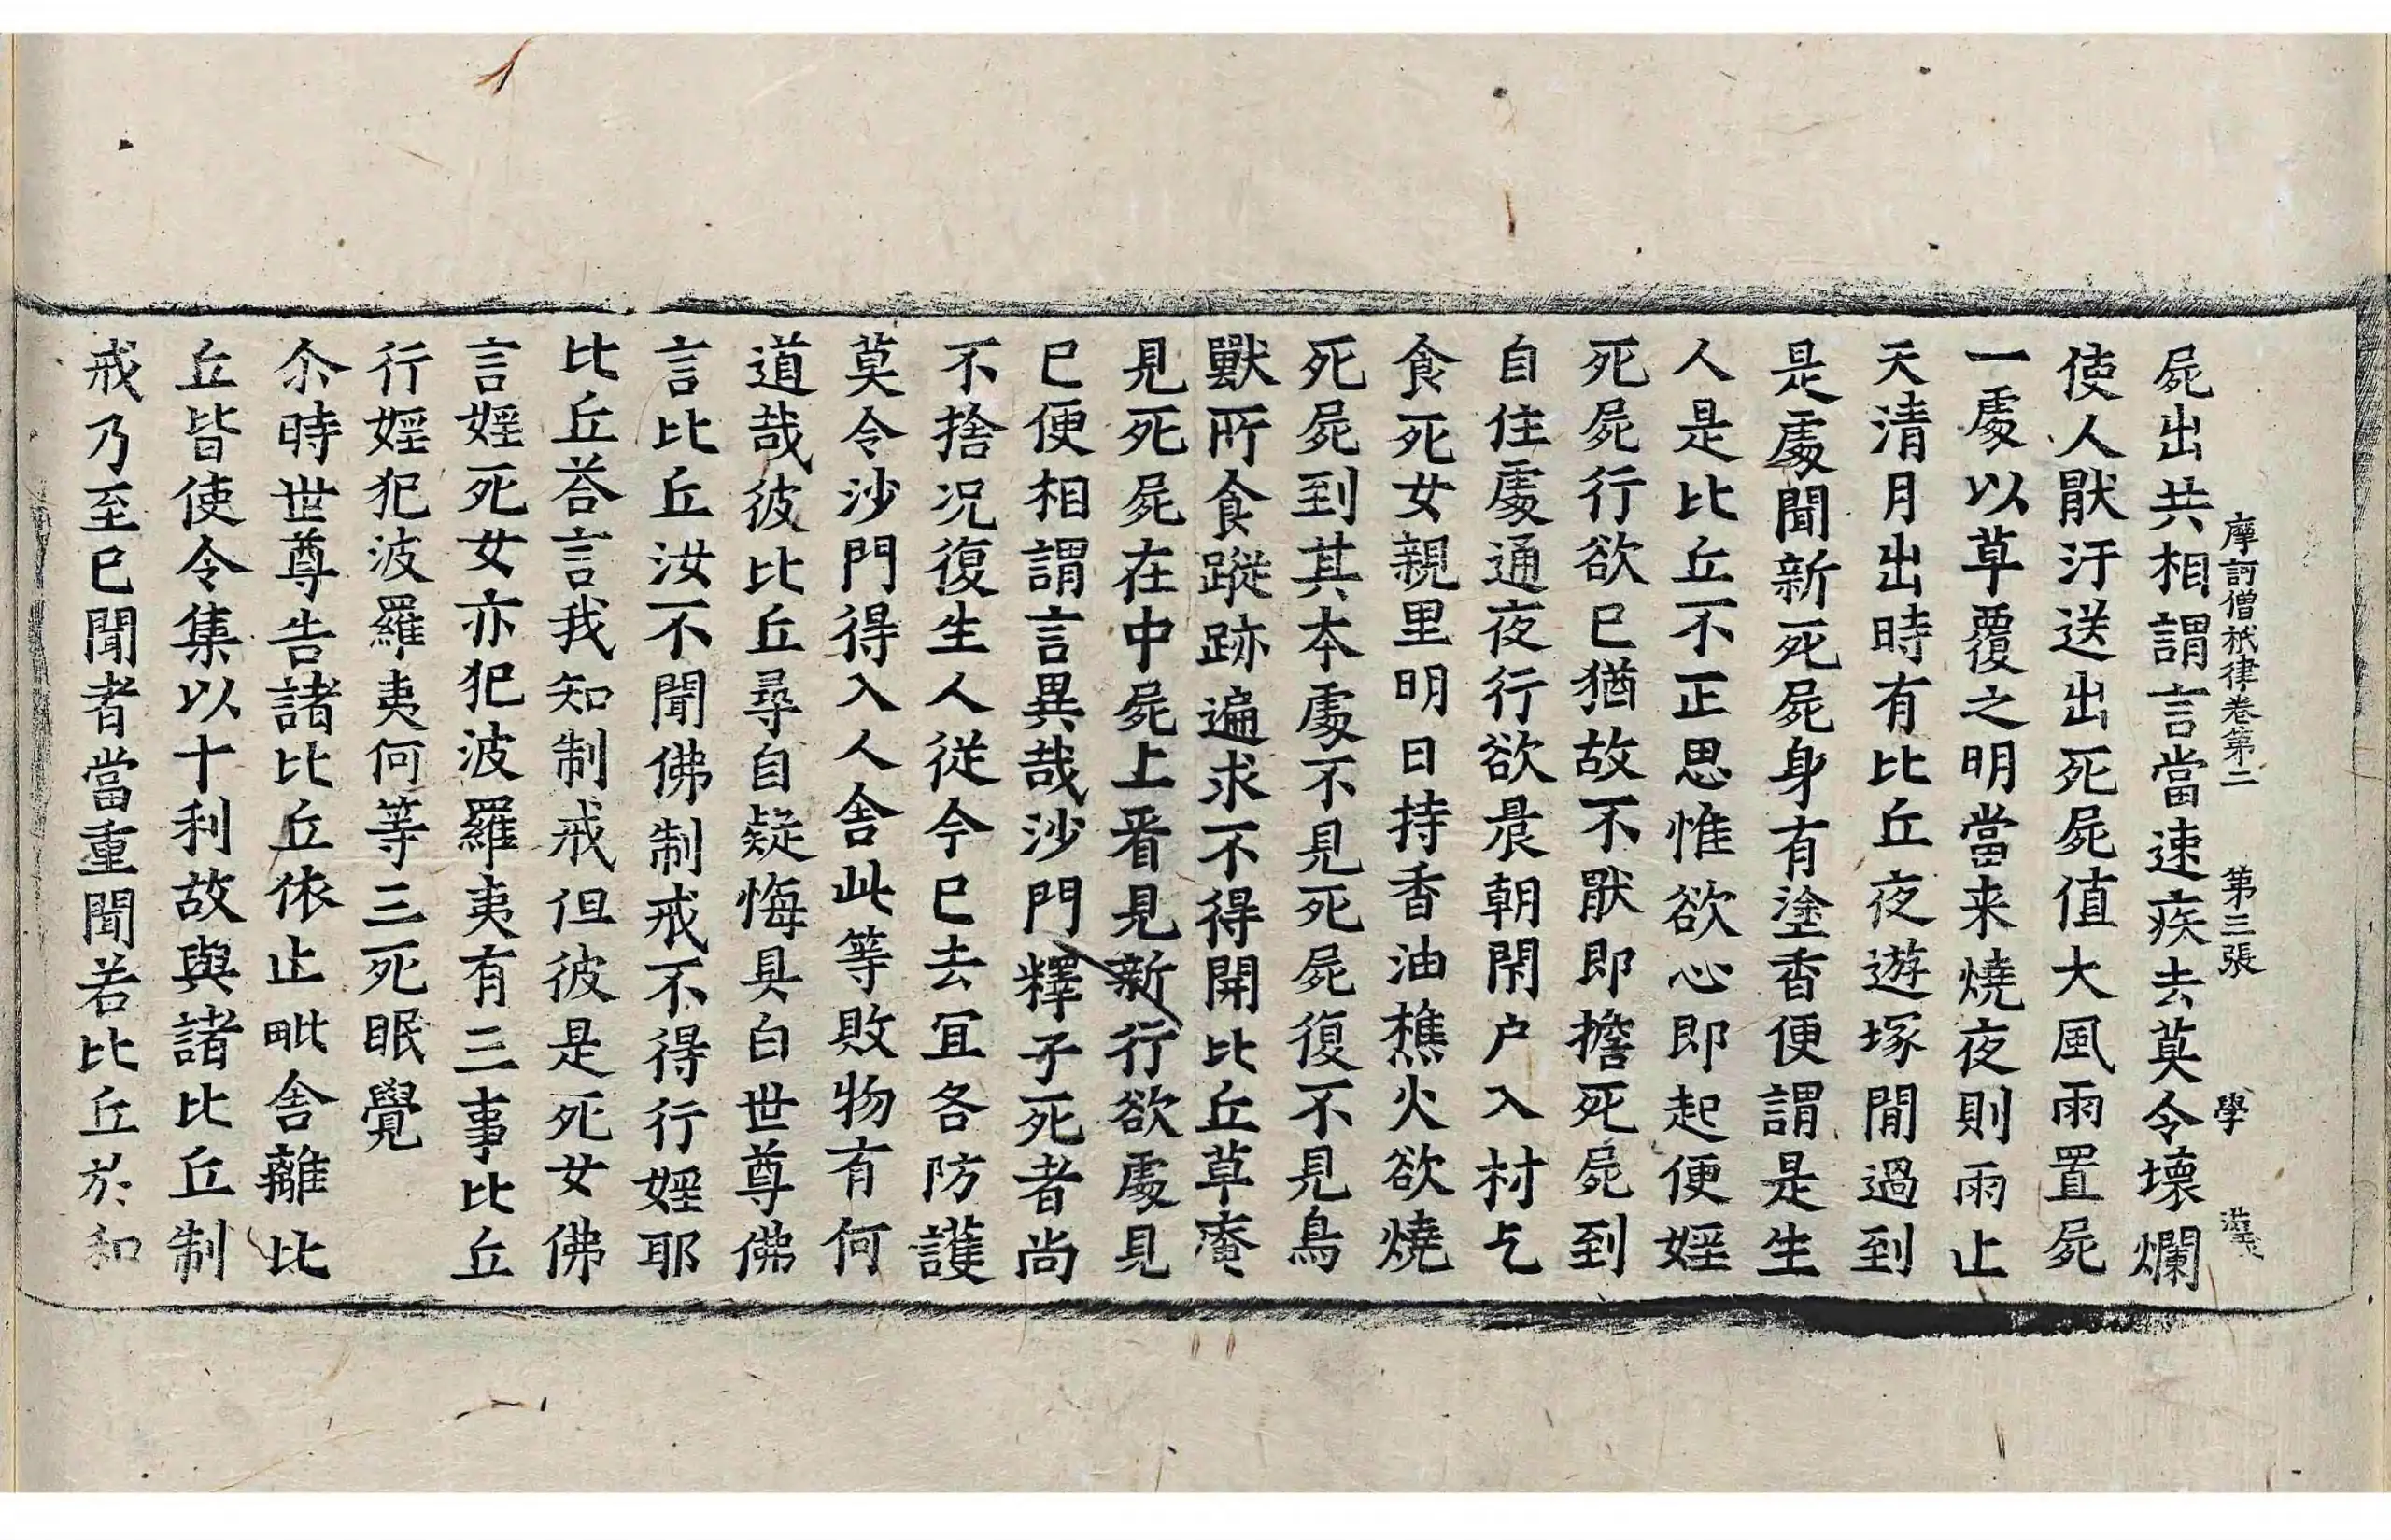 摩訶僧祇律卷第二 第三張 學
屍出共相謂言當速疾去莫令壞爛
使人猒汙送出死屍值大風雨置屍
一處以草覆之明當来燒夜則雨止
天清月出時有比丘夜遊塚閒過到
是處聞新死屍身有塗香便謂是生
人是比丘不正思惟欲心即起便婬
死屍行欲已猶故不猒即擔死屍到
自住處通夜行欲晨朝閇户入村乞
食死女親里明日持香油樵火欲燒
死屍到其本處不見死屍復不見鳥
獸所食蹤跡遍求不得開比丘草庵
見死屍在中屍上看見新行欲處見
已便相謂言異哉沙門釋子死者尚
不捨况復生人從今已去宜各防護
莫令沙門得入人舍此等敗物有何
道哉彼比丘尋自疑悔具白世尊佛
言比丘汝不聞佛制戒不得行婬耶
比丘荅言我知制戒但彼是死女佛
言婬死女亦犯波羅夷有三事比丘
行婬犯波羅夷何等三死眠覺
尒時世尊告諸比丘依止毗舍離比
丘皆使令集以十利故與諸比丘制
戒乃至已聞者當重聞若比丘於和